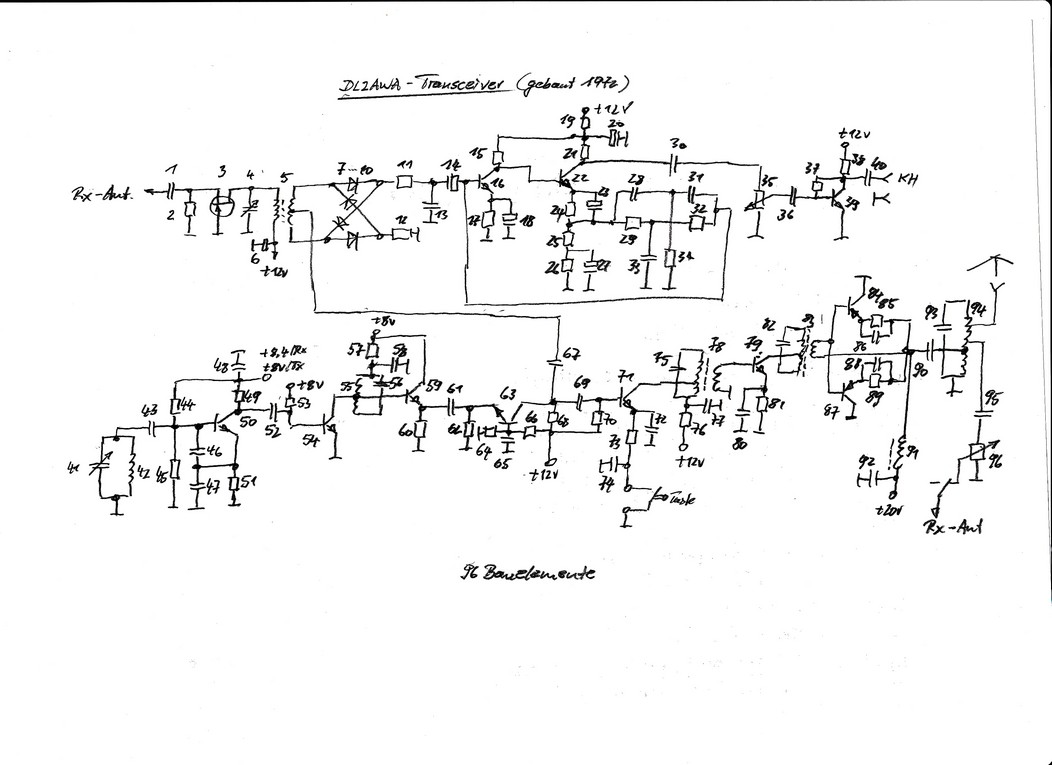 DL2AWA - Transceiver (gebaut 1972)
+12V
19 20
15 21 30
1 3 4 5 7-10 11 14 16 22 23 28 31 35 37 38 40
+12V
Rx-Ant. KH
2 6 12 13 17 18 24 25 26 27 29 32 33 34 36 39
+12V
+8V
57 58 67 75 78 82 83 84 85 93 94
48 +8,4/Rx
+8V/TX
+8V
43 44 49 50 52 53 54 55 56 59 61 63 69 71 79 86 88 90
41 42 45 46 47 51 60 62 64 65 66 68 70 72 73 76 77 80 81 87 89 91 95
+12V
+12V
74 Taste
92 96
+20V
Rx-Ant
96 Bauelemente